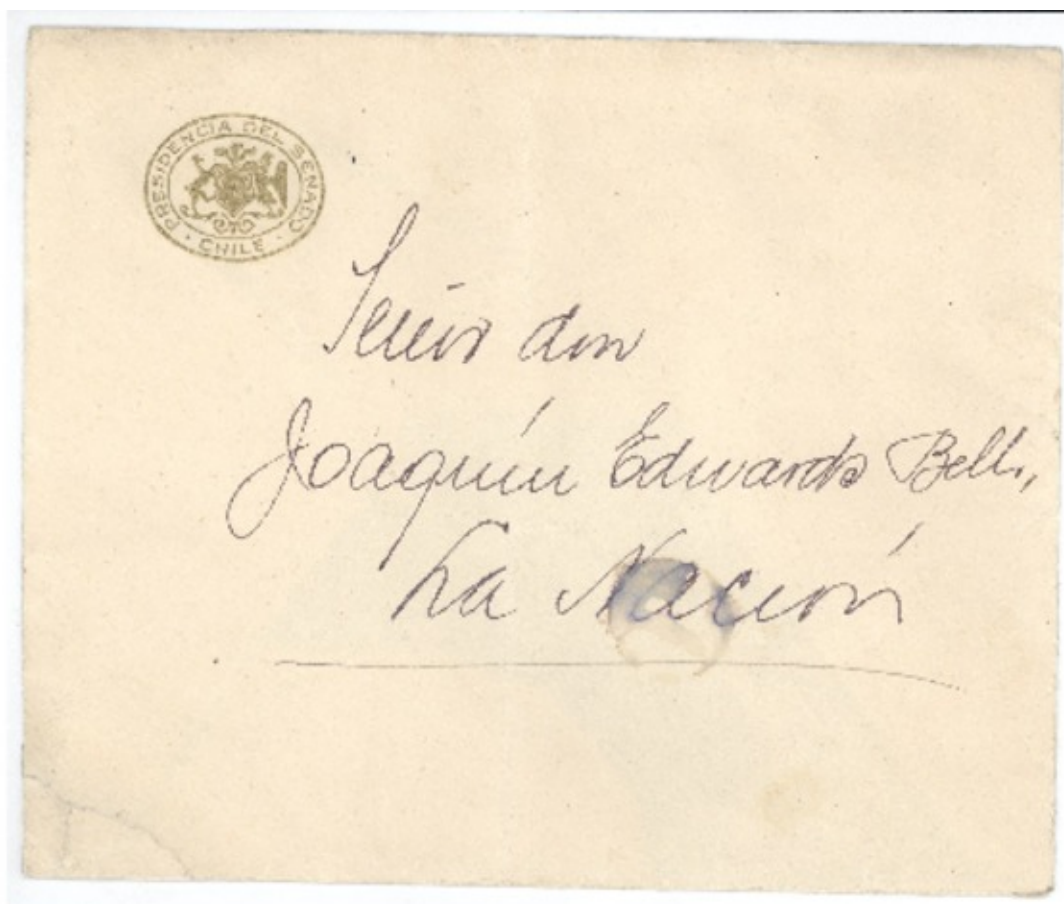 PRESIDENCIA DEL SENADO
· CHILE ·
Señor don
Joaquín Edwards Bello,
La Nación